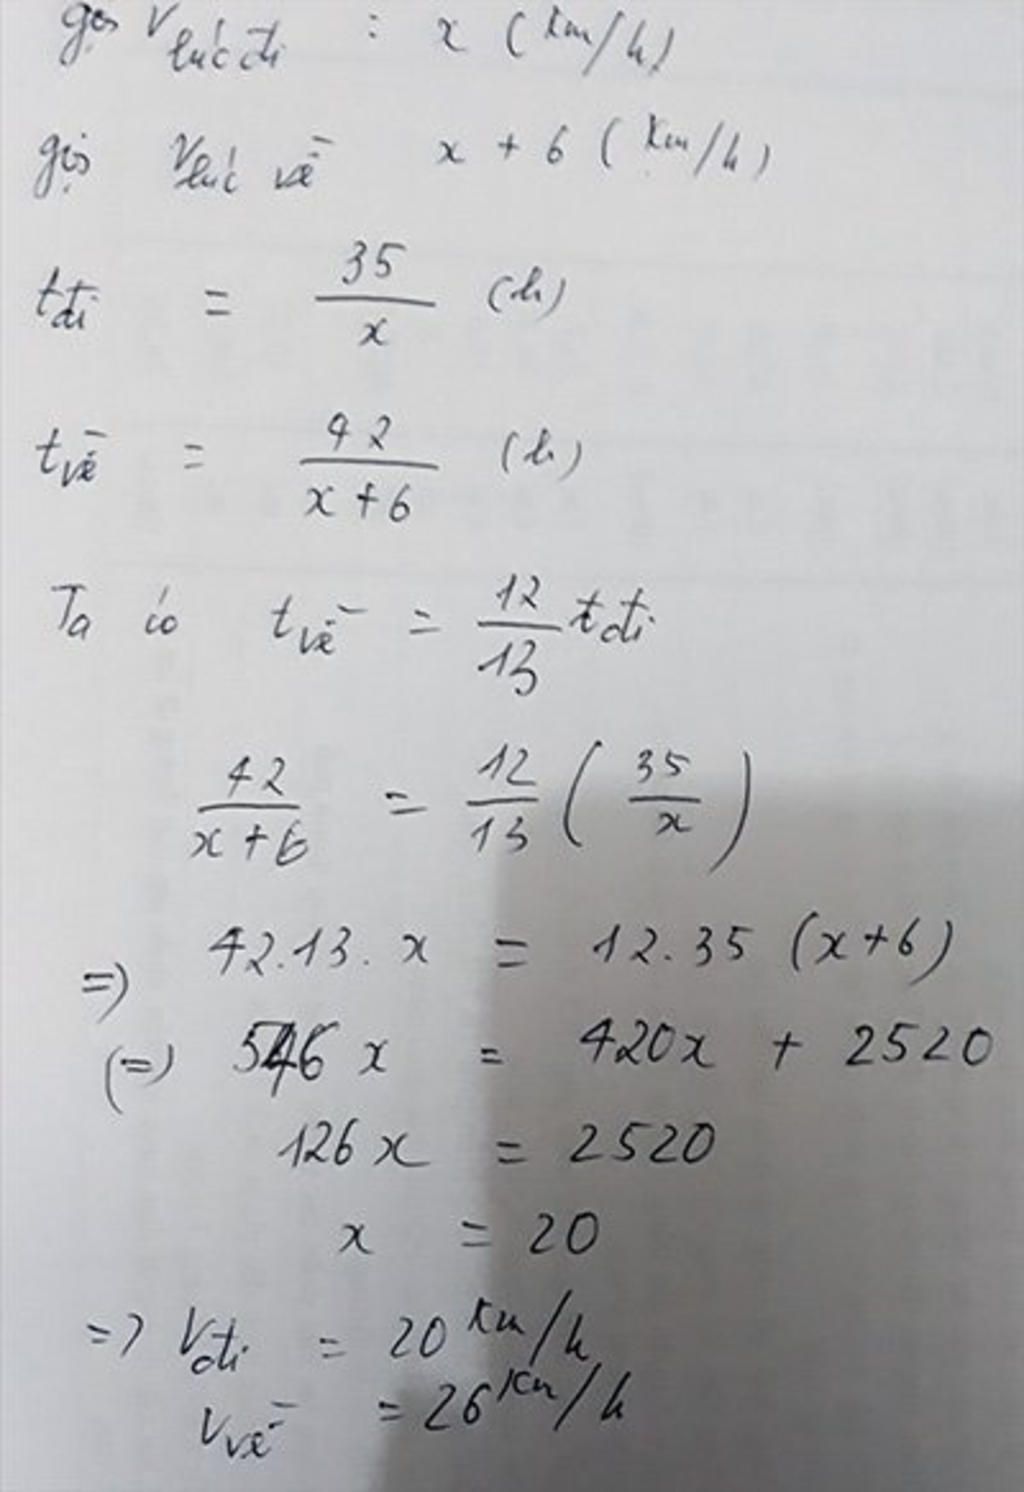 gọi V lúc đi : x (km/h)
gọi V lúc về x + 6 (km/h)
t đi = 35/x (h)
t về = 42/(x+6) (h)
Ta có t về = 12/13 t đi
42/(x+6) = 12/13 (35/x)
=> 42.13.x = 12.35 (x+6)
(=) 546x = 420x + 2520
126x = 2520
x = 20
=> V đi = 20 km/h
V về = 26 km/h